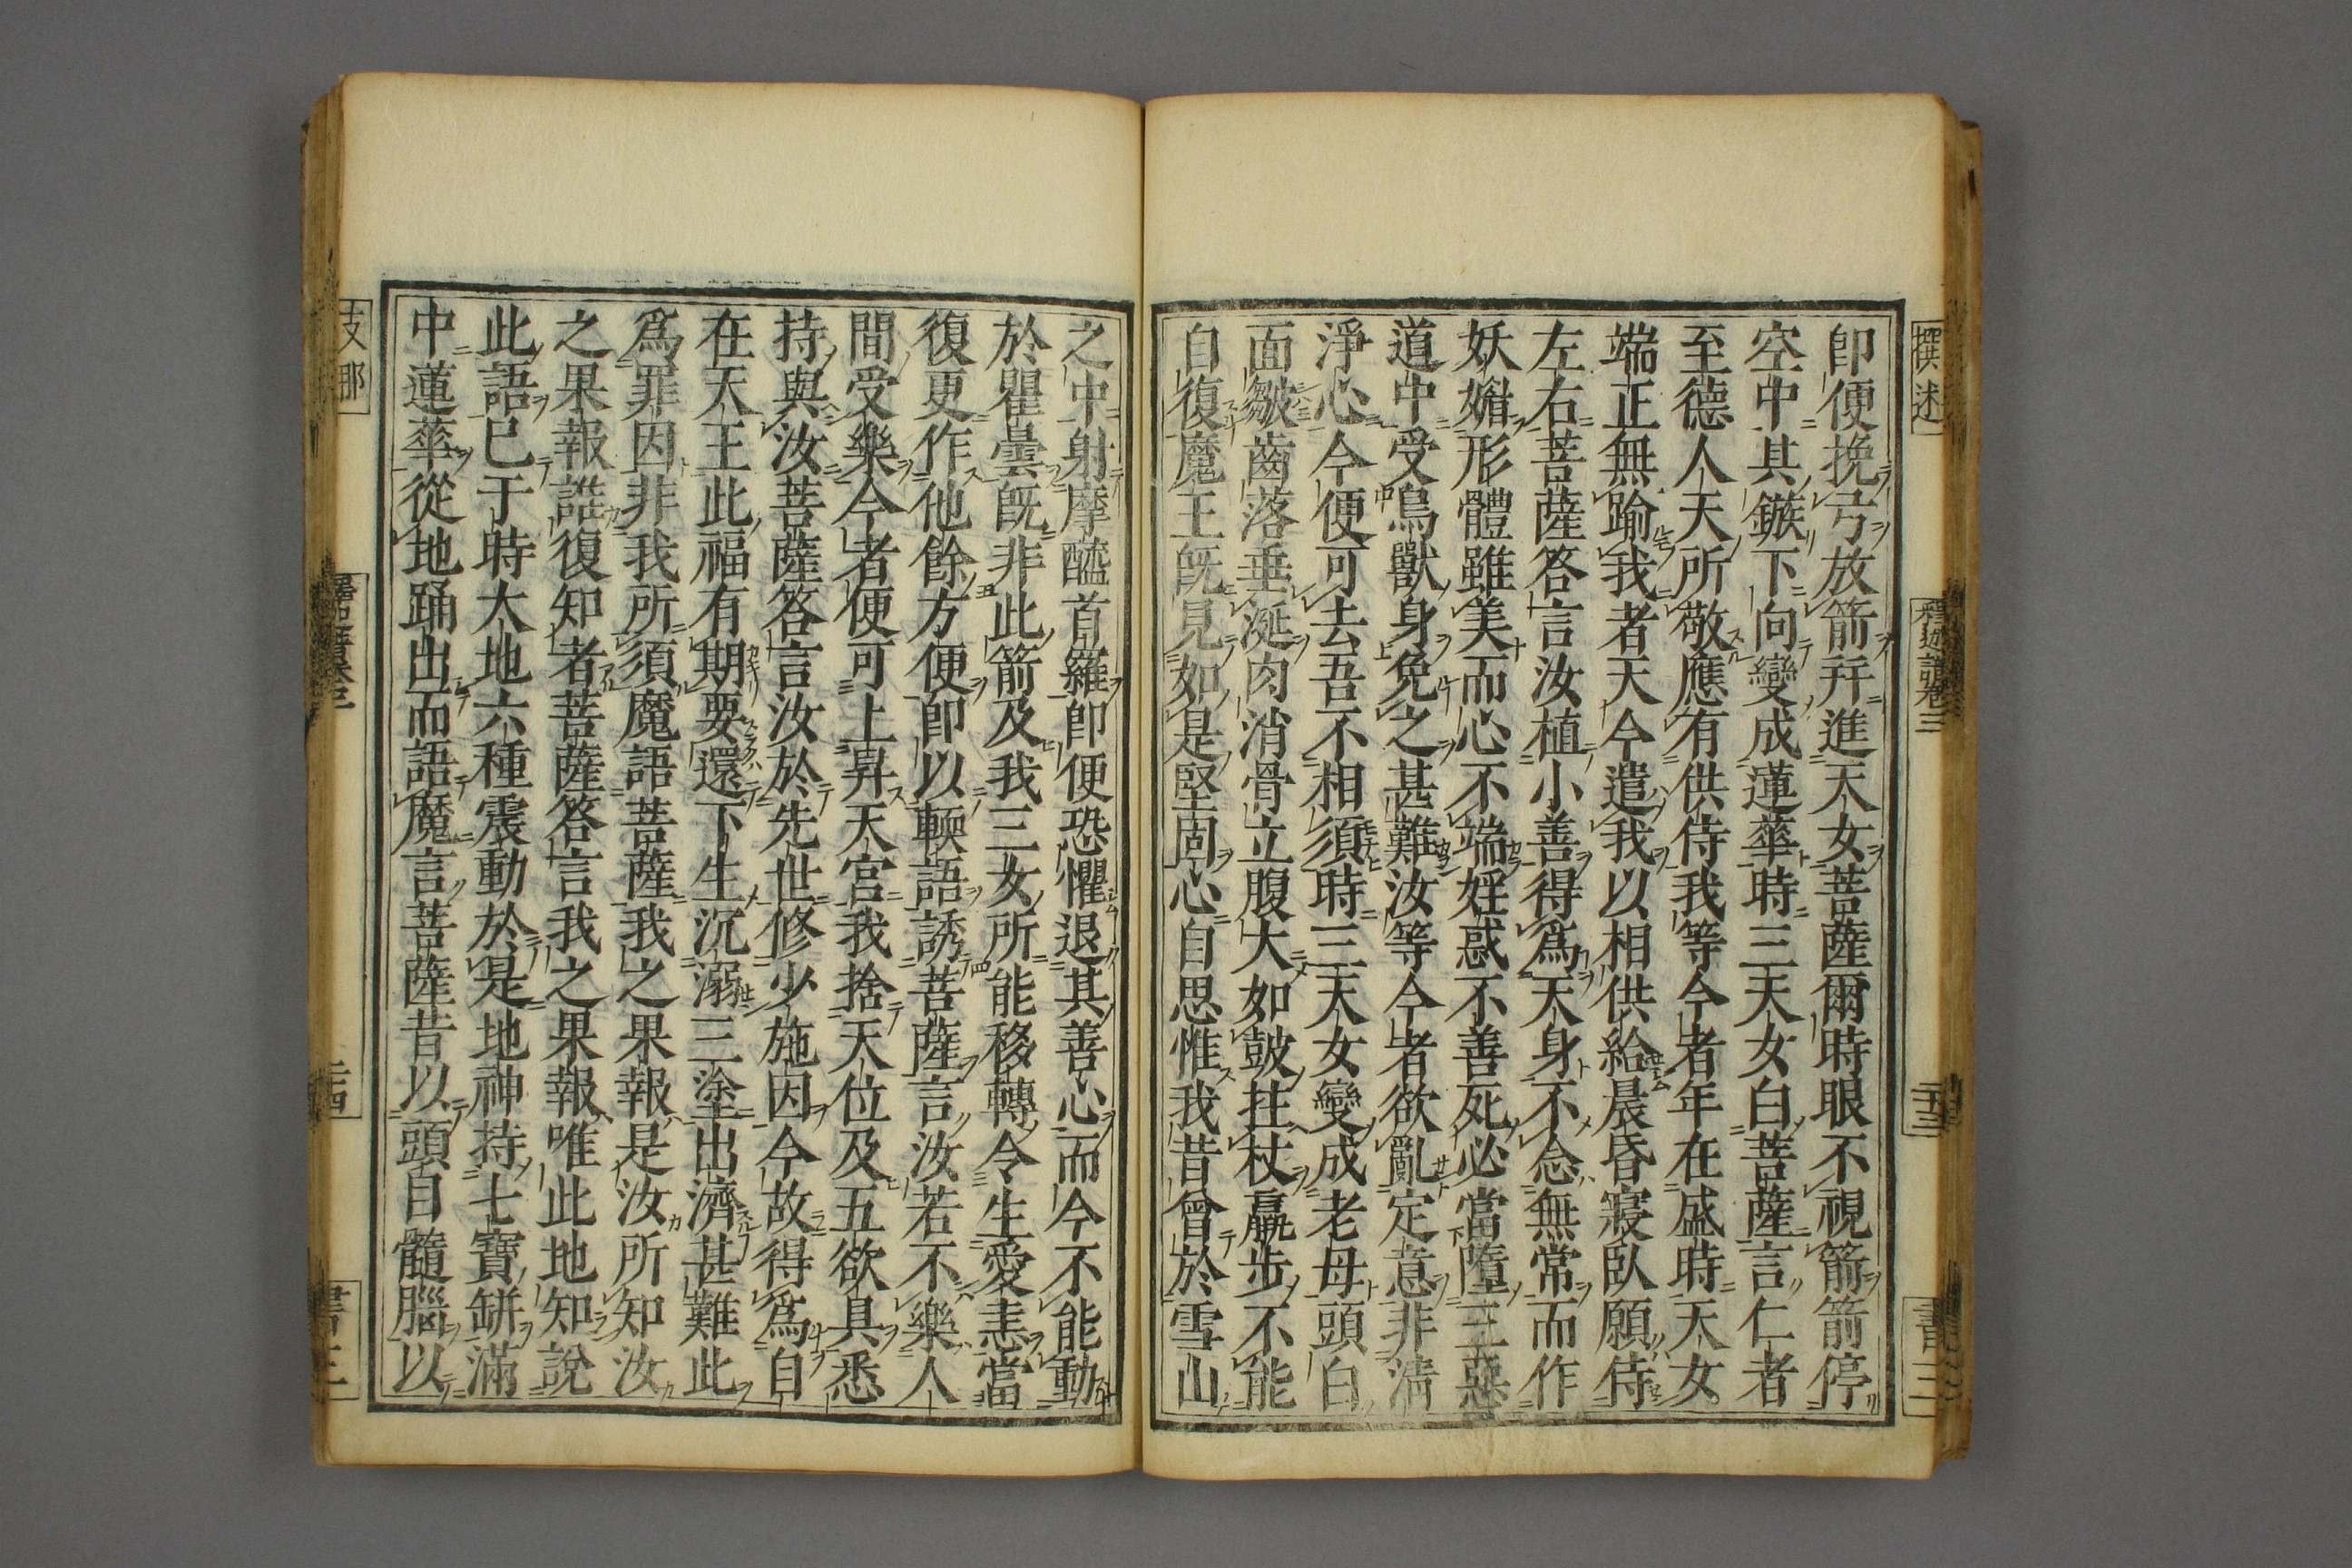 撰述
釋迦譜卷三
二十三
書三
卽便挽弓放箭幷進天女菩薩爾時眼不視箭箭停
空中其鏃下向變成蓮華時三天女白菩薩言仁者
至德人天所敬應有供侍我等今者年在盛時天女
端正無踰我者天今遣我以相供給晨昏寢臥願侍
左右菩薩答言汝植小善得爲天身不念無常而作
妖媚形體雖美而心不端婬惑不善死必當墮三惡
道中受鳥獸身免之甚難汝等今者欲亂定意非淸
淨心今便可去吾不相須時三天女變成老母頭白
面皺齒落垂涎肉消骨立腹大如鼓拄杖羸步不能
自復魔王旣見如是堅固心自思惟我昔曾於雪山
之中射摩醯首羅卽便恐懼退其善心而今不能動
於瞿曇旣非此箭及我三女所能移轉令生愛恚當
復更作他餘方便卽以輭語誘菩薩言汝若不樂人
間受樂今者便可上昇天宮我捨天位及五欲具悉
持與汝菩薩答言汝於先世修少施因今故得爲自
在天王此福有期要還下生沉溺三塗出濟甚難此
爲罪因非我所須魔語菩薩我之果報是汝所知汝
之果報誰復知者菩薩答言我之果報唯此地知說
此語已于時大地六種震動於是地神持七寶缾滿
中蓮華從地踊出而語魔言菩薩昔以頭目髓腦以
支那
二十四
書三